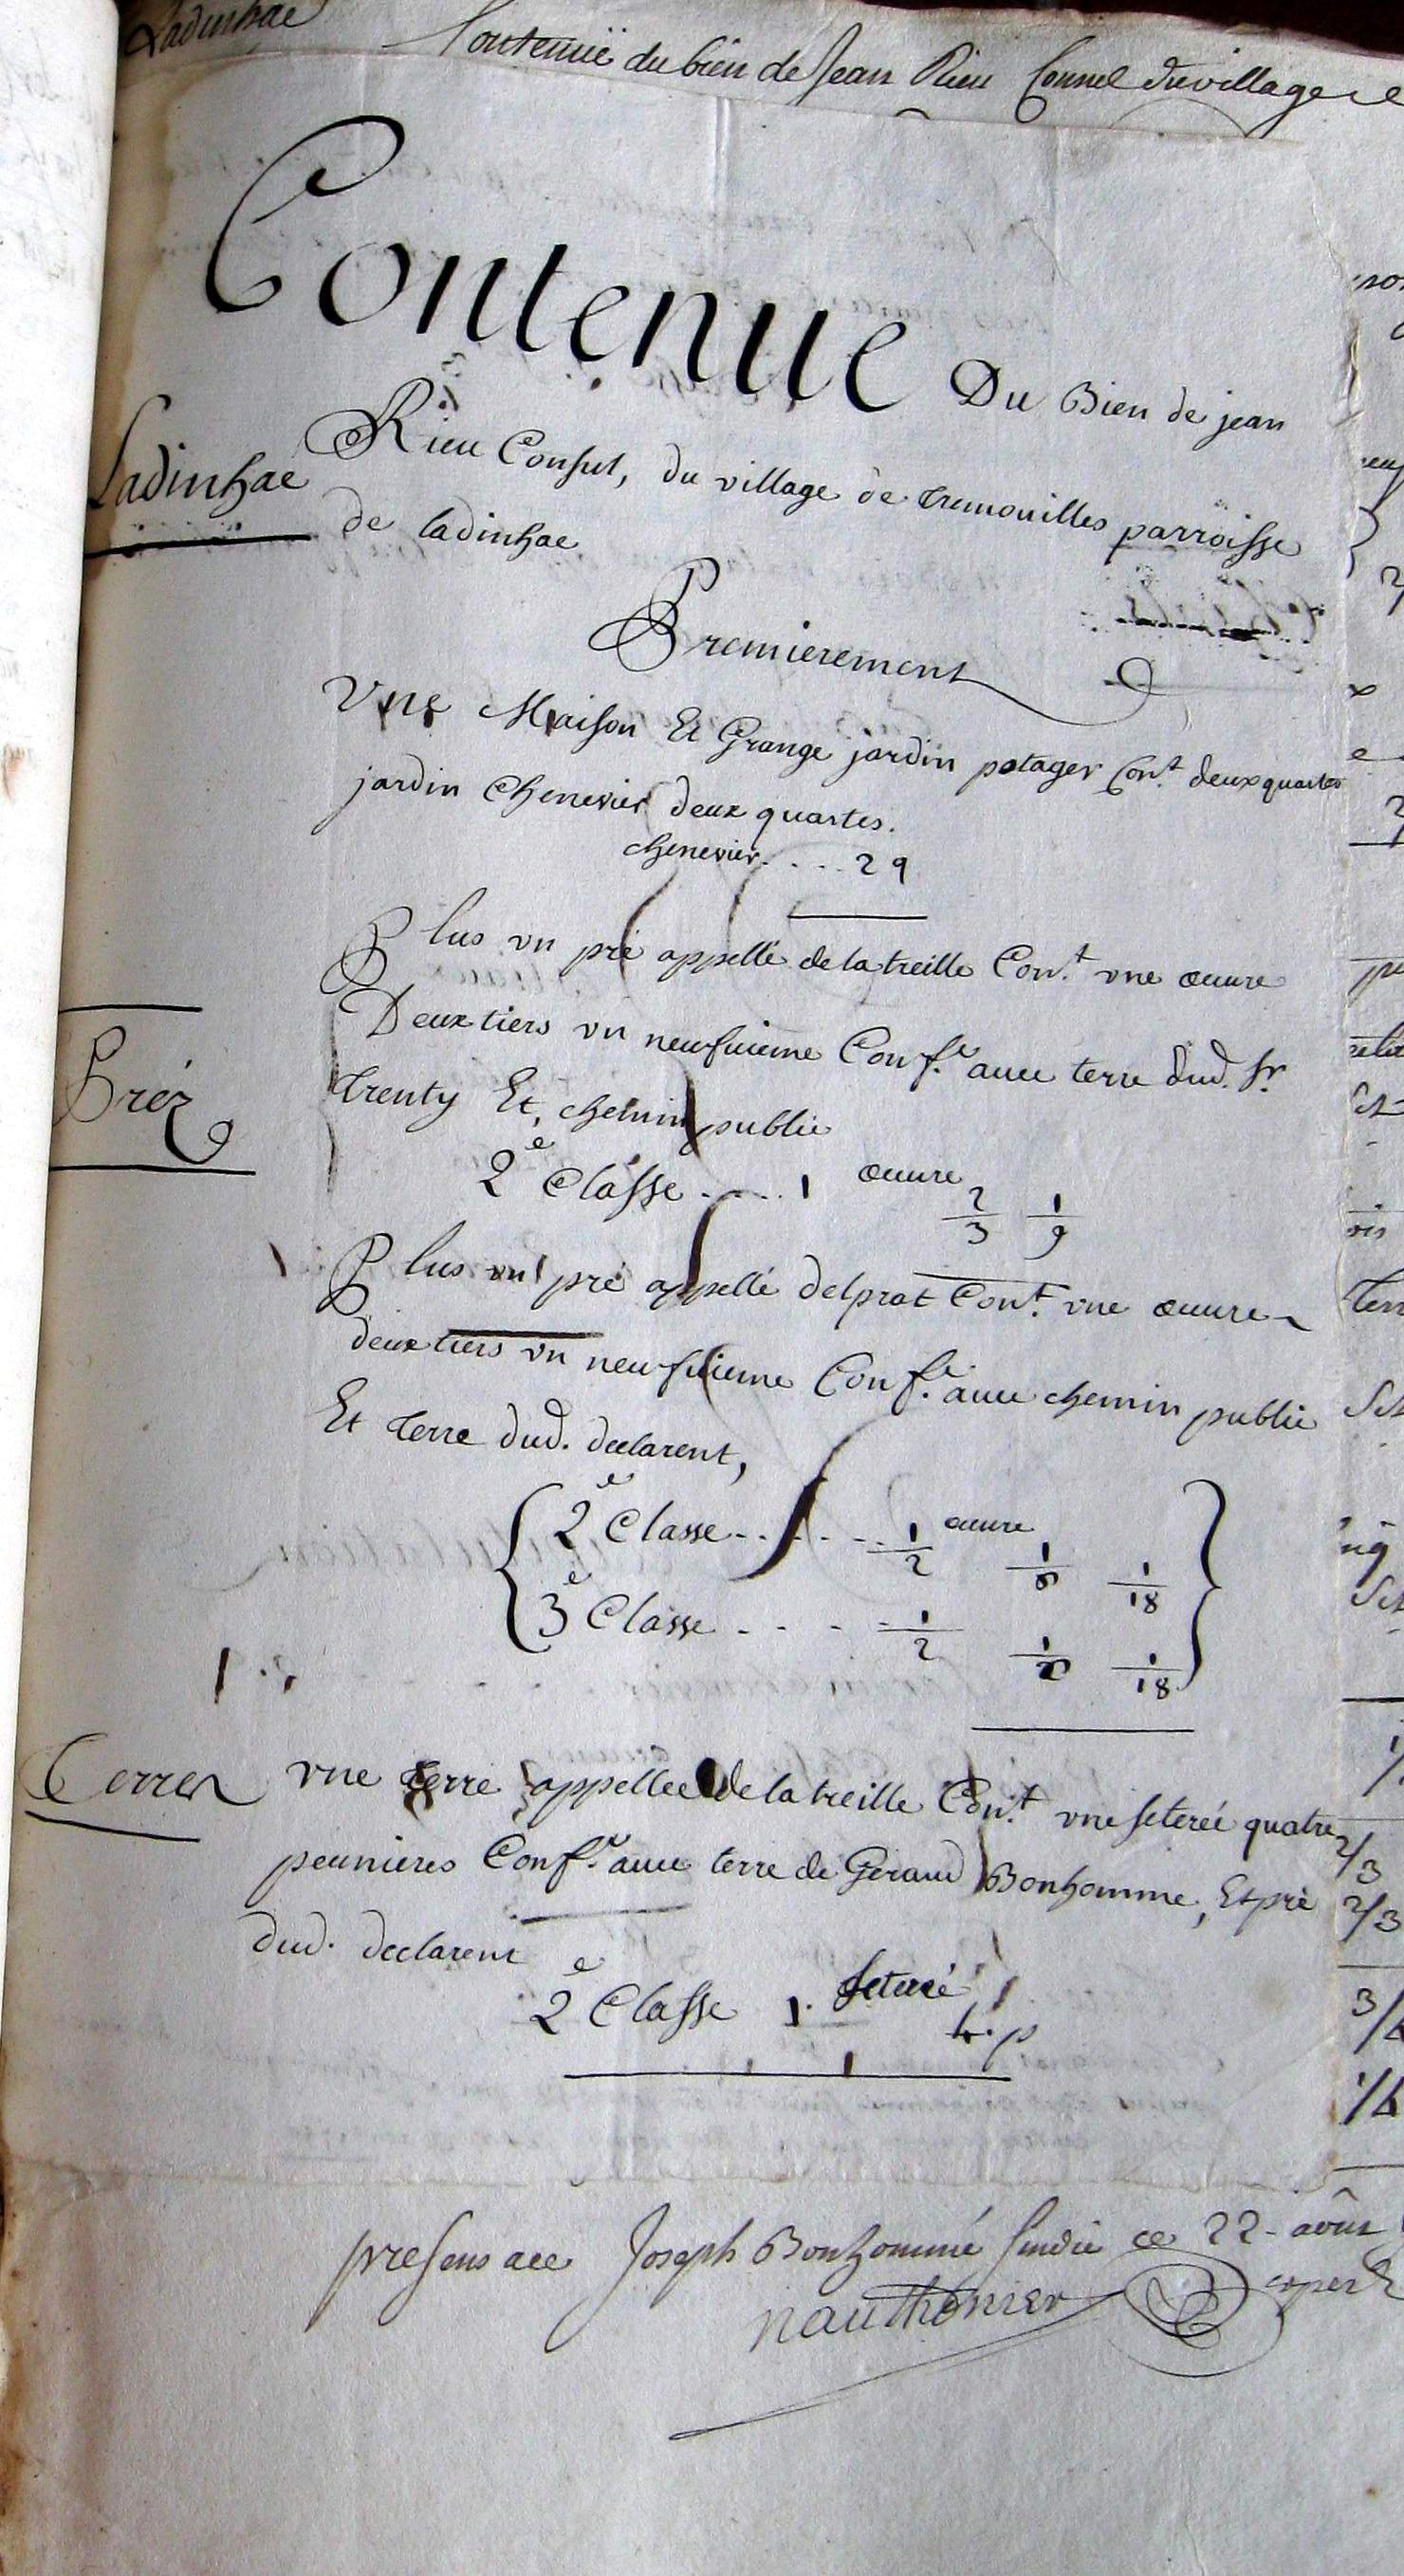 Ladinhac
Contenuë du bien de Jean Rieu Consul du village
Contenue Du Bien de jean
Ladinhac
Rieu Consul, du village de tremouilles parroisse
de ladinhac
Premierement
Vne Maison Et Grange jardin potager Cont. deux quartes
jardin Chenevier deux quartes.
chenevier.... 2 q
Plus vn pré appellé de la treille Cont. vne œuure
Deux tiers vn neufuieme Conf.e auec terre dud. sr.
Prez
trenty Et, chemin public
2e Classe..... 1 œuure 2/3 1/9
Plus vn pré appellé delprat Cont. vne œuure
deux tiers vn neufuieme Conf.e auec chemin public
Et terre dud. declarent,
2e Classe...... 1/2 œuure 1/3 1/18
3e Classe.... 1/2 1/3 1/18
Terres
vne terre appellee de la treille Cont. vne seterée quatre
peunieres Conf.e auec terre de Geraud Bonhomme, Et pré
dud. declarent
2e Classe 1. seterée 4. p
presens auec Joseph Bonhomme sindic ce 22 août
nauthonier expert